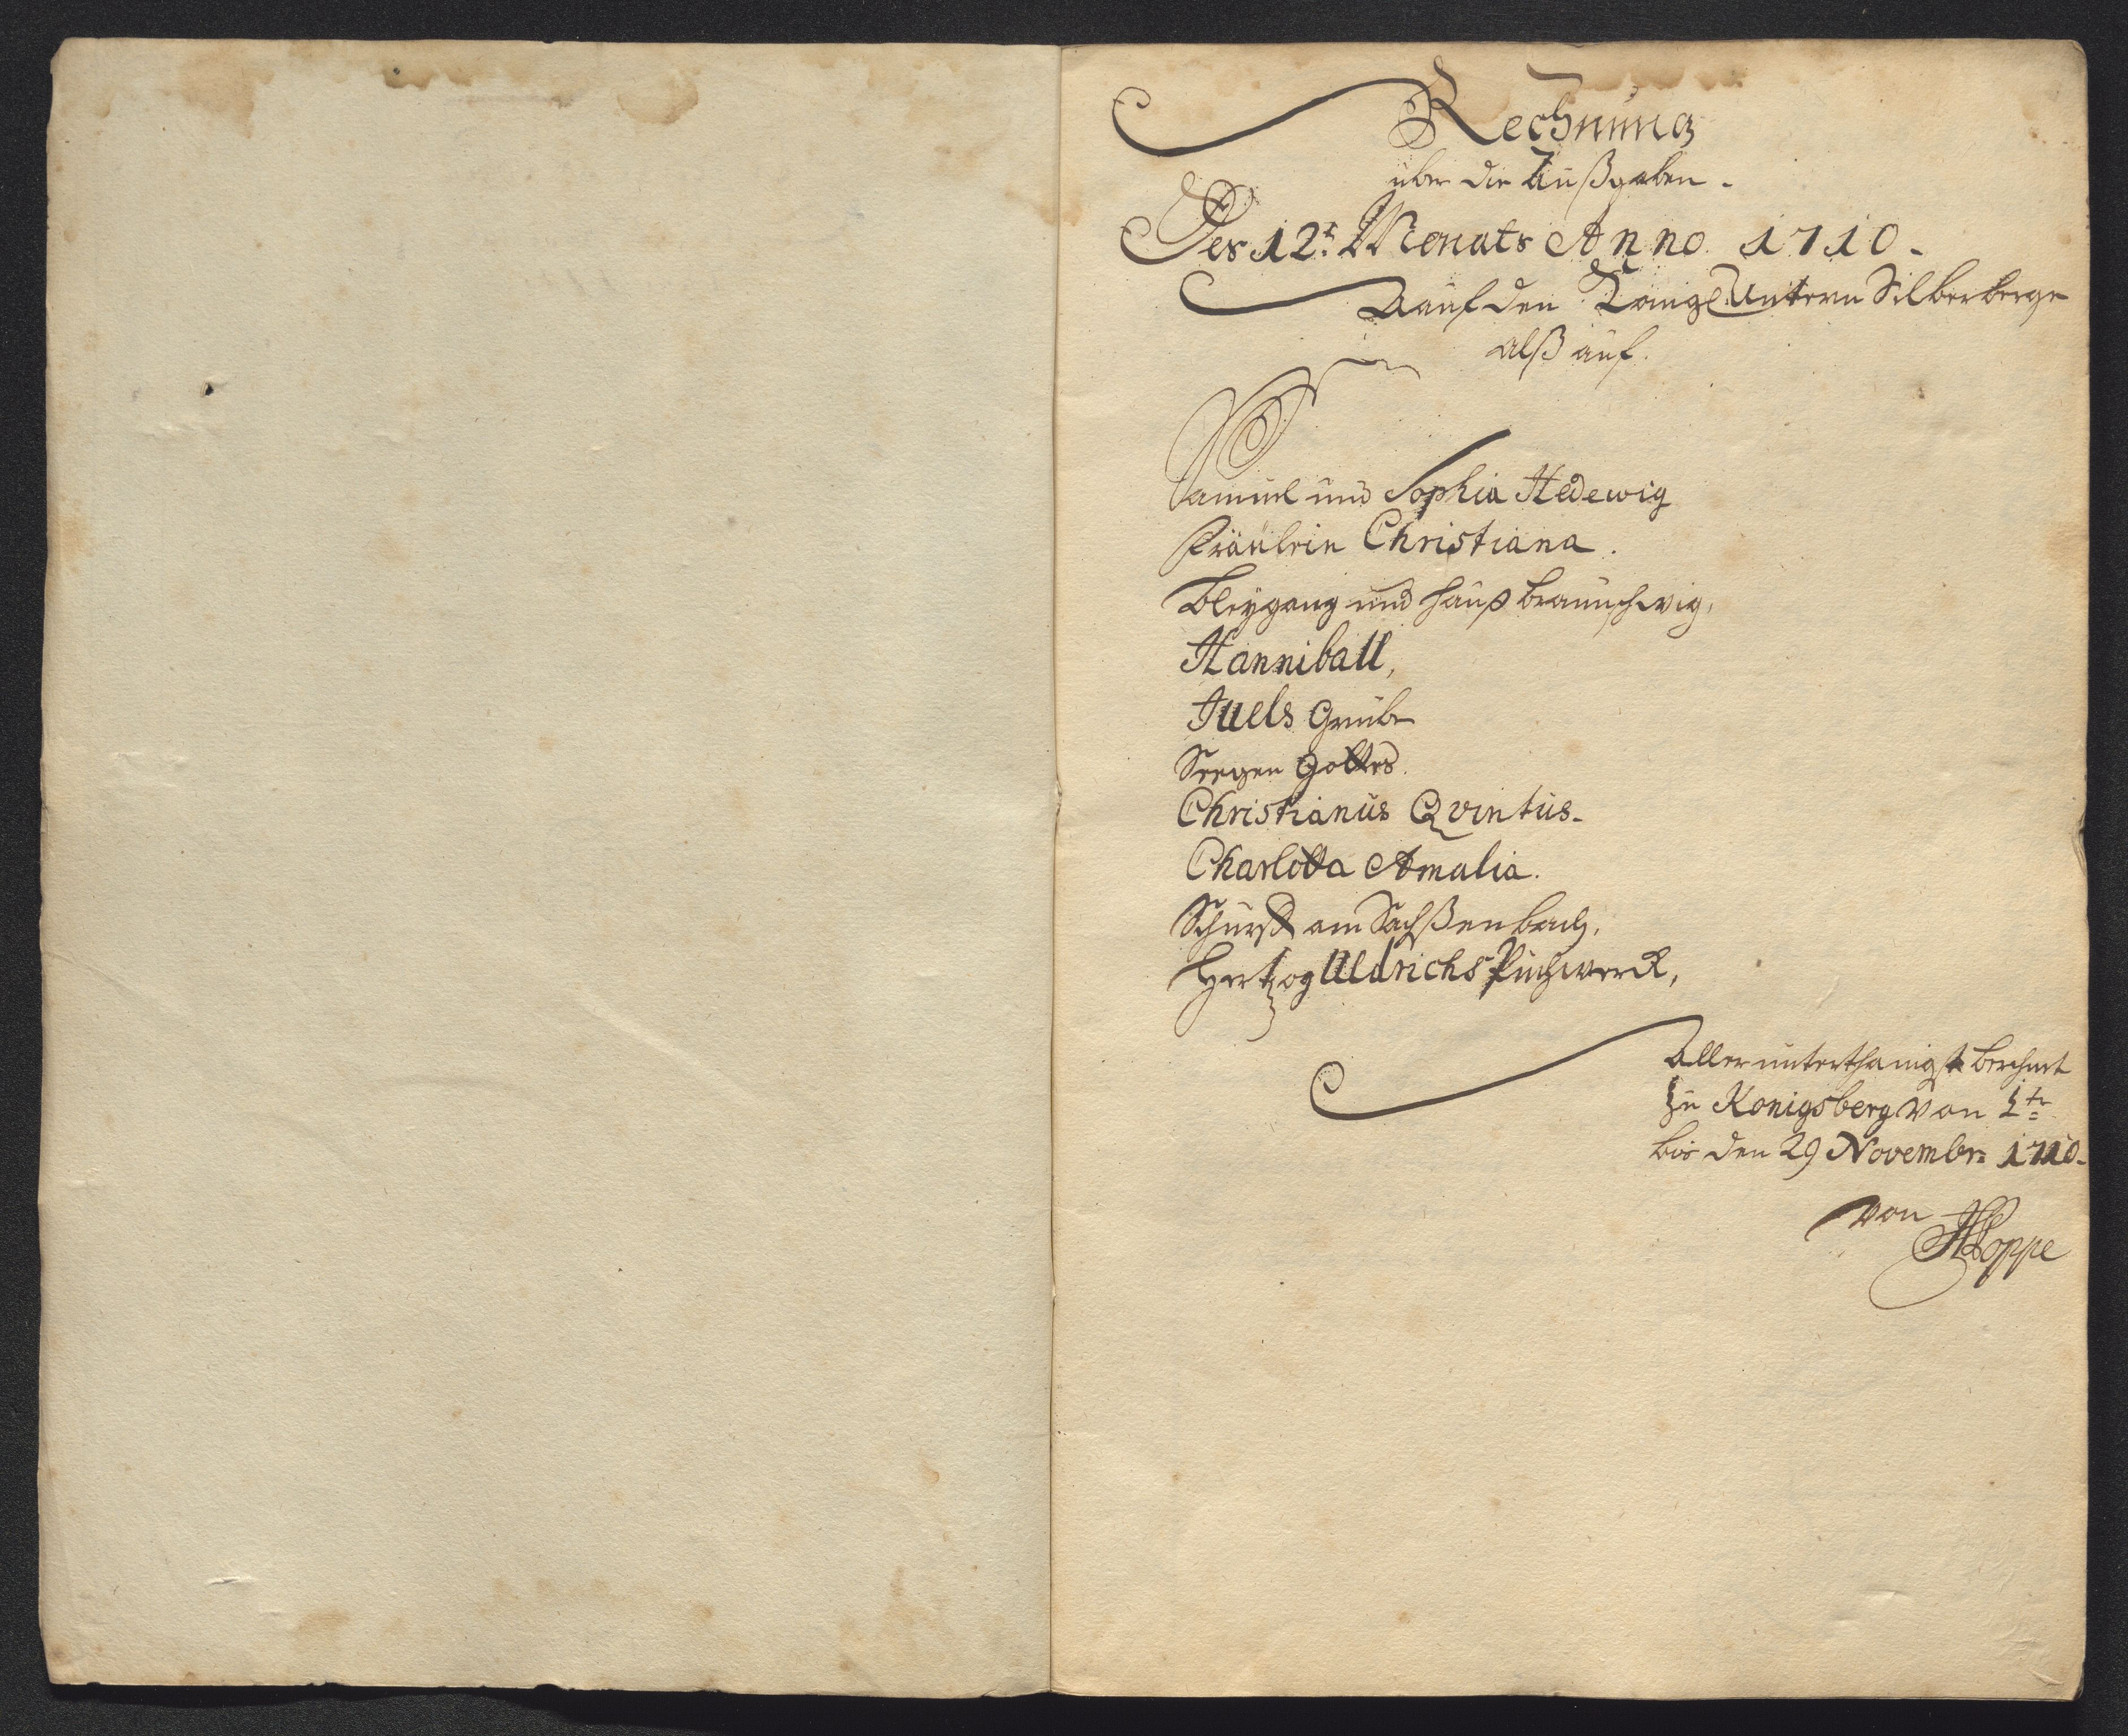 Rechnung
über die Außgaben.
Des 12t. Monats Anno 1710.
Aauf den Königl: Untern Silberberge
alß auf.
Samuel und Sophia Hedewig
Fräulein Christiana.
Bleygang und Hauß Braunschwig,
Hanniball,
Juels Grube
Seegen Gottes.
Christianus Qvintus.
Charlotta Amalia.
Schurff am Sachßenbach,
Hertzog Uldrichs Puchwerck,
Allerunterthänigst berechnet
zu Konigsberg von 1ten
bis den 29 Novembr: 1710.
von
Hoppe